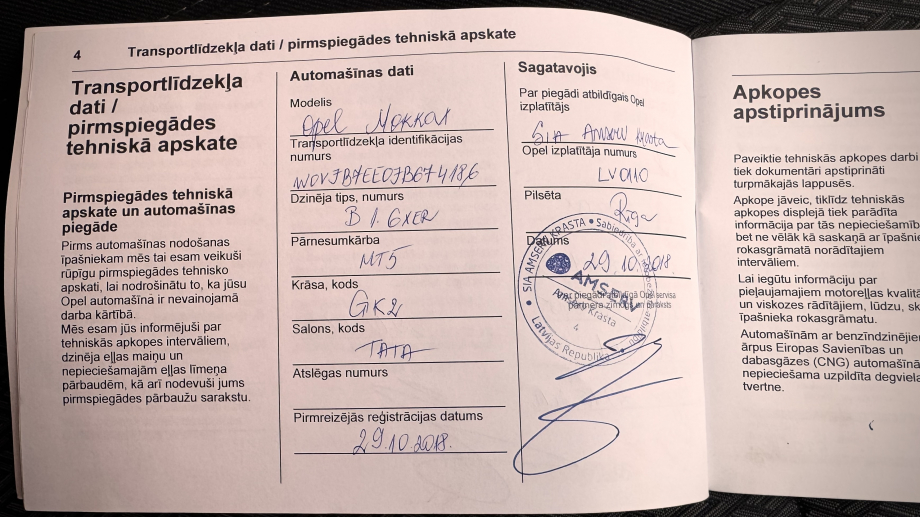 4
Transportlīdzekļa dati / pirmspiegādes tehniskā apskate
Transportlīdzekļa
dati /
pirmspiegādes
tehniskā apskate
Pirmspiegādes tehniskā
apskate un automašīnas
piegāde
Pirms automašīnas nodošanas
īpašniekam mēs tai esam veikuši
rūpīgu pirmspiegādes tehnisko
apskati, lai nodrošinātu to, ka jūsu
Opel automašīna ir nevainojamā
darba kārtībā.
Mēs esam jūs informējuši par
tehniskās apkopes intervāliem,
dzinēja eļļas maiņu un
nepieciešamajām eļļas līmeņa
pārbaudēm, kā arī nodevuši jums
pirmspiegādes pārbaužu sarakstu.
Automašīnas dati
Modelis
Opel
Transportlīdzekļa identifikācijas
numurs
Dzinēja tips, numurs
Pārnesumkārba
MT5
Krāsa, kods
GK2
Salons, kods
TATA
Atslēgas numurs
Pirmreizējās reģistrācijas datums
29.10.2018.
Sagatavojis
Par piegādi atbildīgais Opel
izplatītājs
SIA Amserv Krasta
Opel izplatītāja numurs
LV0110
Pilsēta
Rīga
Datums
29.10.2018
SIA AMSERV KRASTA • Sabiedrība ar
AMSERV
Par piegādi atbildīgā Opel servisa
partnera zīmogs un paraksts
Krasta
4
Latvijas Republika
Apkopes
apstiprinājums
Paveiktie tehniskās apkopes darbi
tiek dokumentāri apstiprināti
turpmākajās lappusēs.
Apkope jāveic, tiklīdz tehniskās
apkopes displejā tiek parādīta
informācija par tās nepieciešamīb
bet ne vēlāk kā saskaņā ar īpašnie
rokasgrāmatā norādītajiem
intervāliem.
Lai iegūtu informāciju par
pieļaujamajiem motoreļļas kvalitā
un viskozes rādītājiem, lūdzu, sk
īpašnieka rokasgrāmatu.
Automašīnām ar benzīndzinējie
ārpus Eiropas Savienības un
dabasgāzes (CNG) automašīnā
nepieciešama uzpildīta degviela
tvertne.